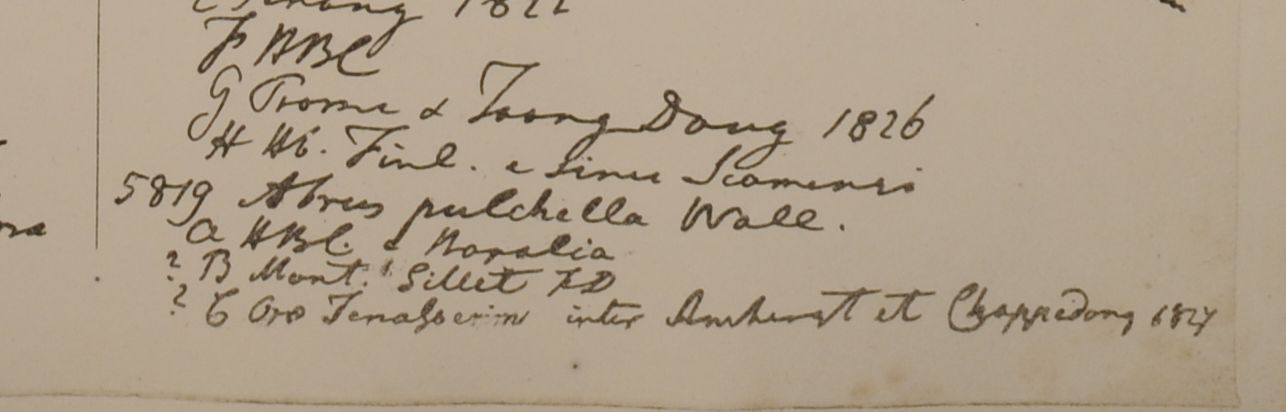 1822
F HBC
G Prome & Toong Dong 1826
H Hb. Finl. e sinu Siamensi
5819 Abrus pulchella Wall.
a HBC. e Napalia
? B Mont. Sillet FD
? C Oro Tenasserim inter Amherst et Chappedong 1827